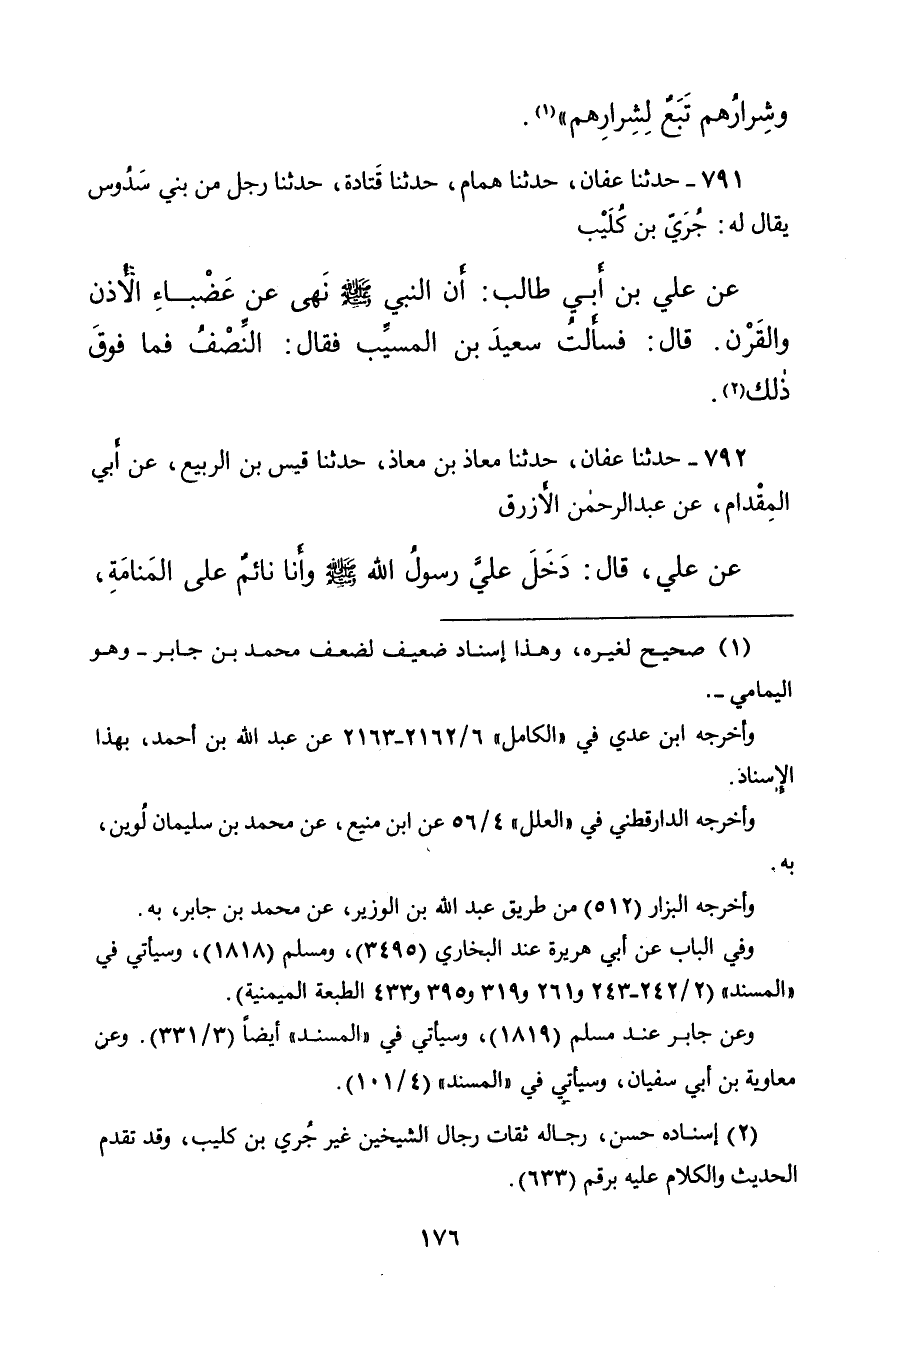 وشِرارُهم تَبَعٌ لِشِرارِهم»(١).
٧٩١ ـ حدثنا عفان، حدثنا همام، حدثنا قَتادة، حدثنا رجل من بني سَدُوس
يقال له: جُرَيّ بن كُلَيْب
عن علي بن أَبي طالب: أَن النبي ﷺ نَهى عن عَضْباءِ الأُذن
والقَرْن. قال: فسأَلتُ سعيدَ بن المسيِّب فقال: النِّصْفُ فما فوقَ
ذٰلك(٢).
٧٩٢ ـ حدثنا عفان، حدثنا معاذ بن معاذ، حدثنا قيس بن الربيع، عن أَبي
المِقْدام، عن عبدالرحمٰن الأَزرق
عن علي، قال: دَخَلَ عليَّ رسولُ الله ﷺ وأَنا نائمٌ على المَنامَةِ،
(١) صحيح لغيره، وهذا إسناد ضعيف لضعف محمد بن جابر ـ وهو
اليمامي ـ.
وأخرجه ابن عدي في «الكامل» ٢١٦٢/٦-٢١٦٣ عن عبد الله بن أحمد، بهذا
الإسناد.
وأخرجه الدارقطني في «العلل» ٥٦/٤ عن ابن منيع، عن محمد بن سليمان لُوين،
به.
وأخرجه البزار (٥١٢) من طريق عبد الله بن الوزير، عن محمد بن جابر، به.
وفي الباب عن أبي هريرة عند البخاري (٣٤٩٥)، ومسلم (١٨١٨)، وسيأتي في
«المسند» (٢٤٢/٢-٢٤٣ و٢٦١ و٣١٩ و٣٩٥ و٤٣٣ الطبعة الميمنية).
وعن جابر عند مسلم (١٨١٩)، وسيأتي في «المسند» أيضاً (٣٣١/٣). وعن
معاوية بن أبي سفيان، وسيأتي في «المسند» (١٠١/٤).
(٢) إسناده حسن، رجاله ثقات رجال الشيخين غير جُري بن كليب، وقد تقدم
الحديث والكلام عليه برقم (٦٣٣).
١٧٦